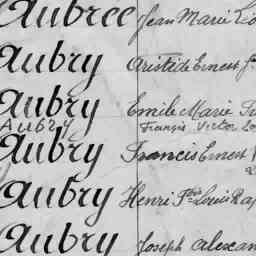 Aubree Jean Marie
Aubry Aristide Ernest
Aubry Emile Marie
AUBRY François Victor
Aubry Francis Ernest
Aubry Henri Fois Louis
Aubry Joseph